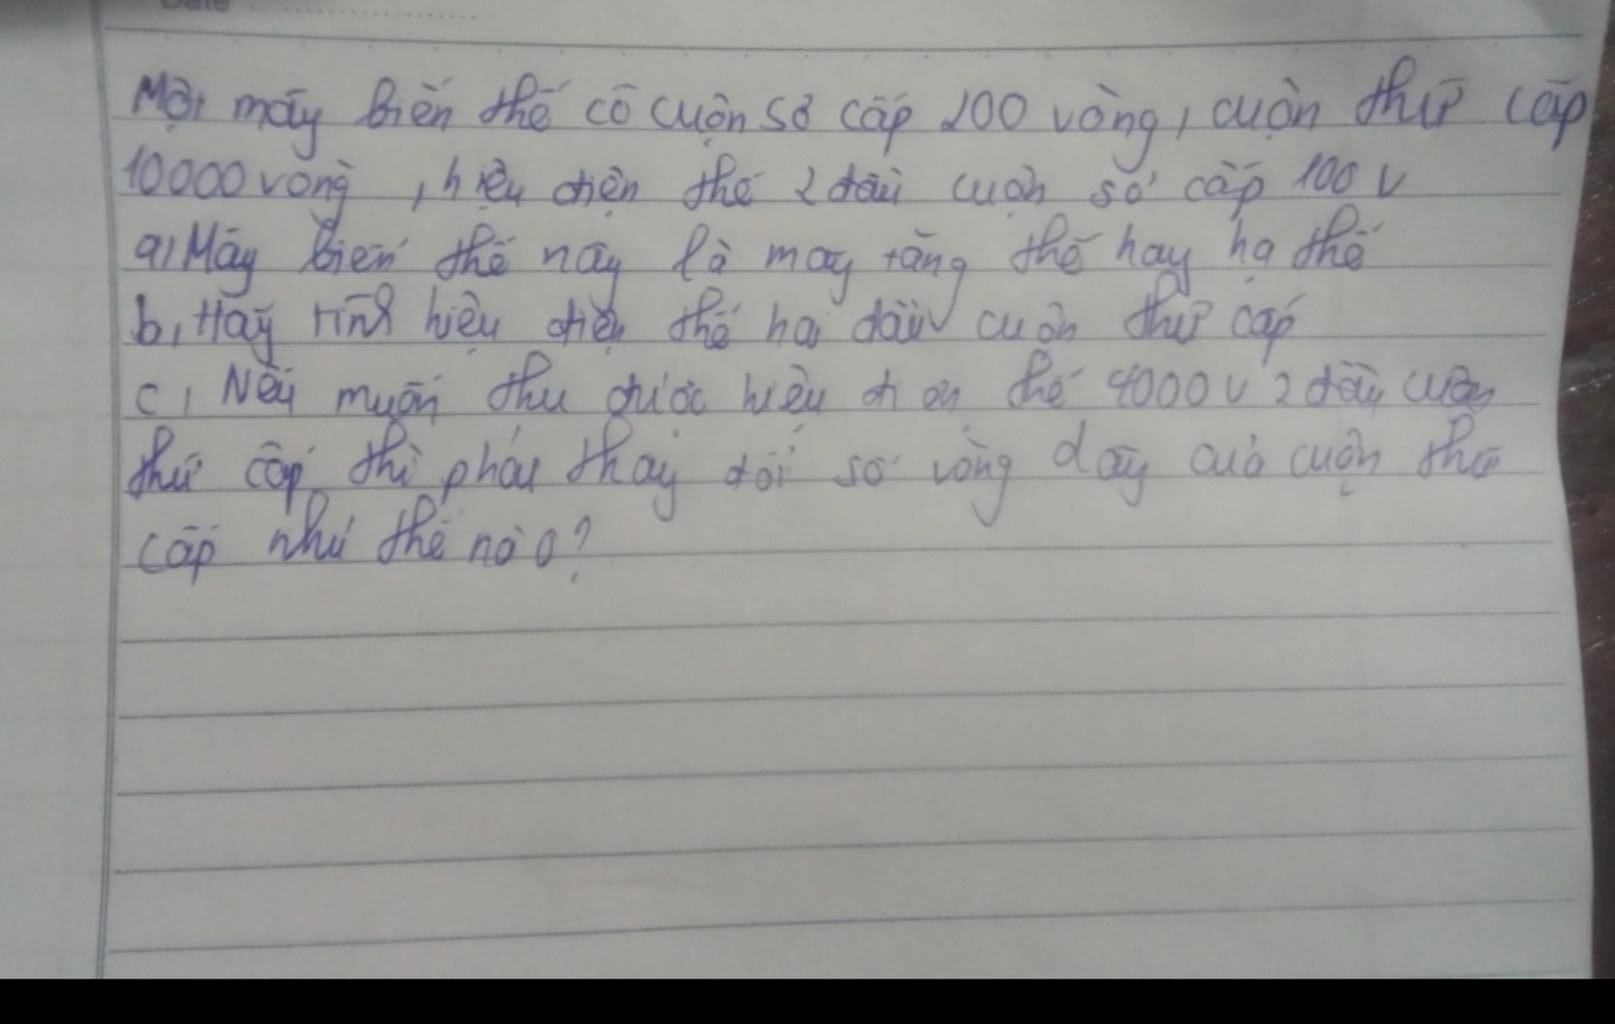 Date
Một máy biến thế có cuộn sơ cấp 200 vòng, cuộn thứ cấp
10000 vòng, hiệu điện thế 2 đầu cuộn sơ cấp 100 V
a, Máy biến thế này là máy tăng thế hay hạ thế
b, Hãy tính hiệu điện thế hai đầu cuộn thứ cấp
c, Nếu muốn thu được hiệu điện thế 4000 V 2 đầu cuộn
thứ cấp thì phải thay đổi số vòng dây của cuộn thứ
cấp như thế nào?